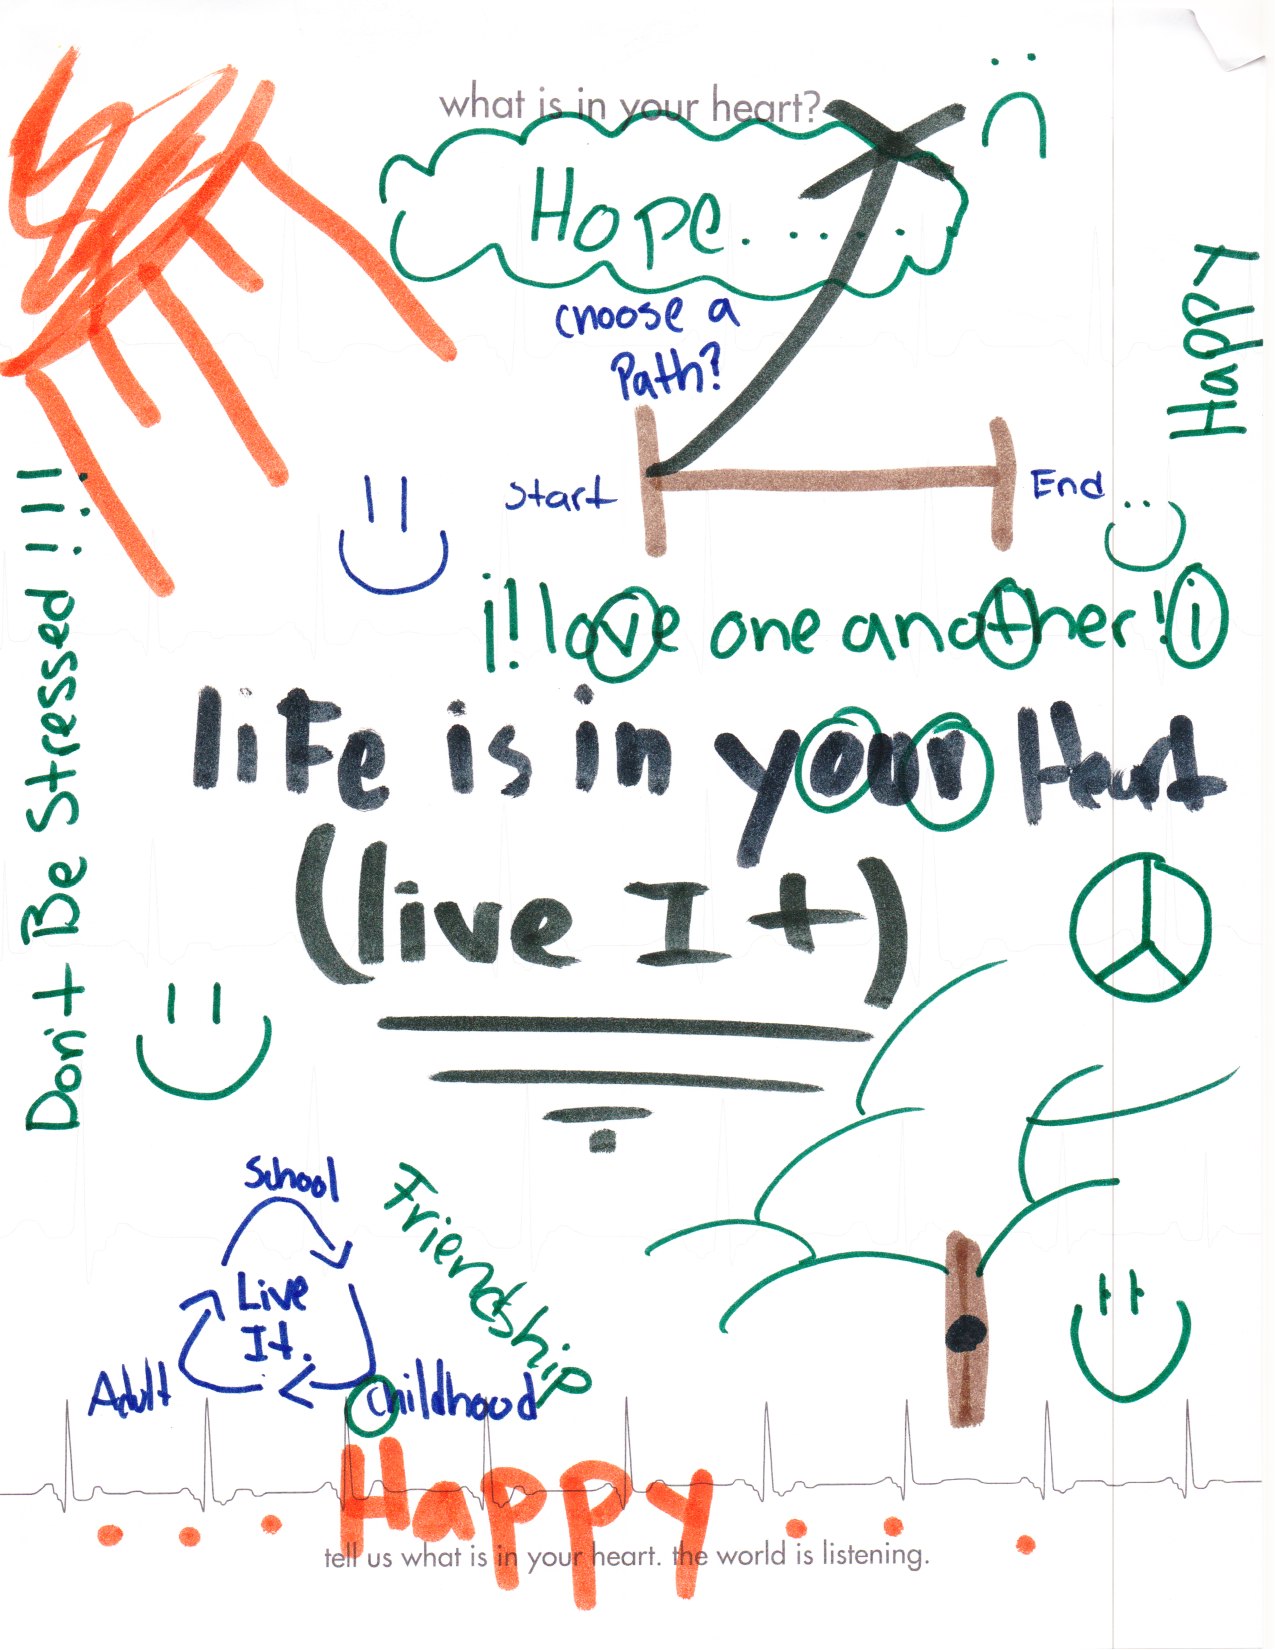 what is in your heart?
Hope.....
choose a
Path?
Start
End
Happy
Don't Be Stressed!!!
¡! love one another!¡
life is in your Heart
(live It)
School
Live
It.
Adult
Childhood
Friendship
...Happy...
tell us what is in your heart. the world is listening.